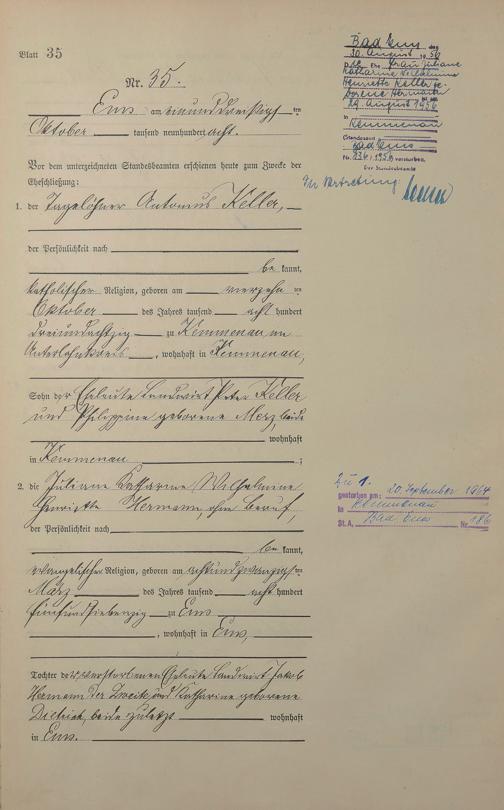 Blatt 35
Nr. 35.
Ems am einunddreißigs ten
Oktober tausend neunhundert acht.
Vor dem unterzeichneten Standesbeamten erschienen heute zum Zwecke der
Eheschließung:
1. der Tagelöhner Antonius Keller,
der Persönlichkeit nach
be kannt,
katholischer Religion, geboren am vierzehn ten
Oktober des Jahres tausend acht hundert
dreiundachtzig zu Kemmenau im
Unterlahnkreis, wohnhaft in Kemmenau,
Sohn der Eheleute Landwirt Peter Keller
und Philippine geborene Merz, beide
wohnhaft
in Kemmenau ;
2. die Juliane Katharine Wilhelmine
Henriette Hermann ohne Beruf,
der Persönlichkeit nach
be kannt,
evangelischer Religion, geboren am achtundzwanzigs ten
März des Jahres tausend acht hundert
fünfundsiebenzig zu Ems
, wohnhaft in Ems,
Tochter der verstorbenen Eheleute Landwirt Jakob
Hermann der Zweite und Katharine geborene
Dietrich, beide zuletzt wohnhaft
in Ems.
Bad Ems, den
30. August 1956
Die Ehefrau Juliane
Katharine Wilhelmine
Henriette Keller ge-
borene Hermann
29. August 1956
in
Kemmenau
Standesamt
Bad Ems
Nr. 236/1956 verstorben.
Der Standesbeamte
In Vertretung
Zu 1.
gestorben am: 20. September 1964
in Kemmenau
St. A. Bad Ems Nr. 186